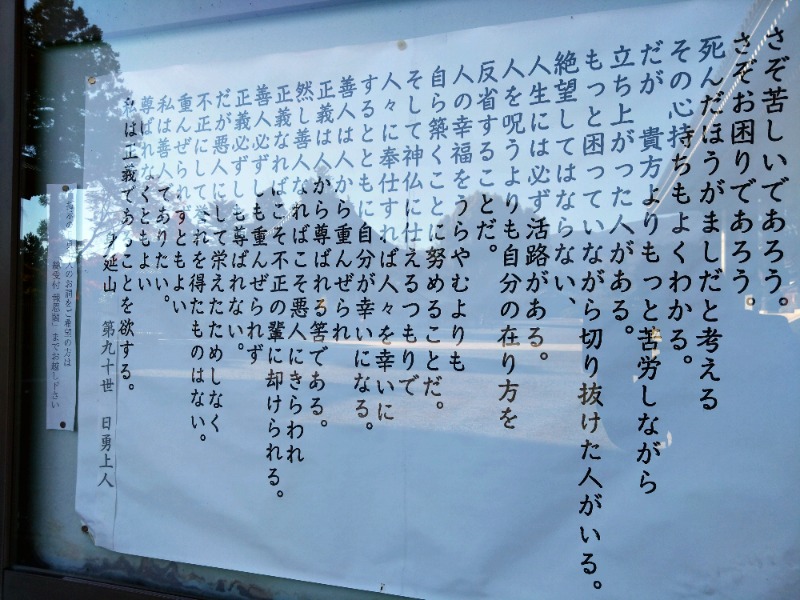 さぞ苦しいであろう。
さぞお困りであろう。
死んだほうがましだと考える
その心持ちもよくわかる。
だが 貴方よりもっと苦労しながら
立ち上がった人がある。
もっと困っていながら切り抜けた人がいる。
絶望してはならない、
人生には必ず活路がある。
人を呪うよりも自分の在り方を
反省することだ。
人の幸福をうらやむよりも
自ら築くことに努めることだ。
そして神仏に仕えるつもりで
人々に奉仕すれば人々を幸いに
するとともに自分が幸いになる。
善人は人から重んぜられ
正義は人から尊ばれる筈である。
然し善人なればこそ悪人にきらわれ
正義なればこそ不正の輩に却けられる。
善人必ずしも重んぜられず
正義必ずしも尊ばれない。
だが悪人にして栄えたためしなく
不正にしてそれを得たものはない。
重んぜられずともよい
私は善人でありたい。
尊ばれなくともよい
私は正義であることを欲する。
身延山 第九十世 日勇上人
のお詞をご希望の方は
総受付「報恩閣」までお越し下さい